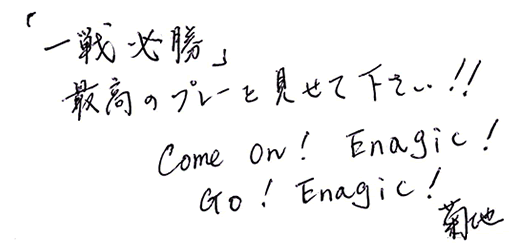 「一戦必勝」
最高のプレーを見せて下さい!!
Come on! Enagic!
Go! Enagic!
菊地